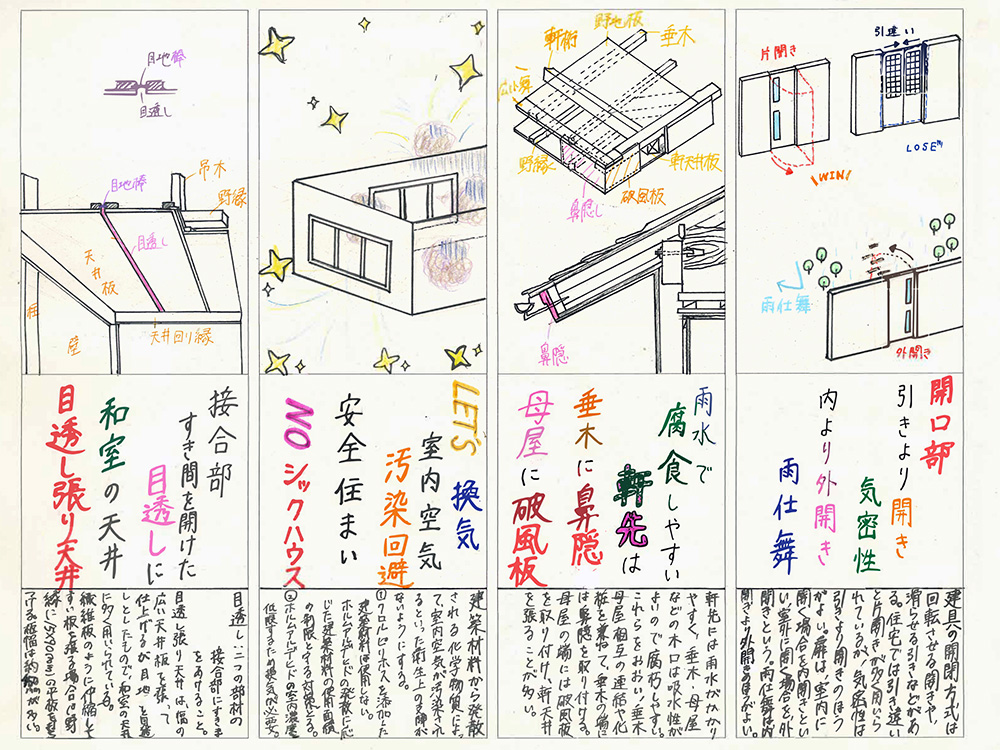 片開き
引違い
WIN!
LOSE
雨仕舞
外開き
開口部
引きより開き
気密性
内より外開き
雨仕舞
建具の開閉方式は
回転させる開きや、
滑らせる引きなどがあ
る。住宅では引き違い
と片開きが多く用いら
れているが、気密性は
引きより開きのほう
がよい。扉は、室内に
開く場合を内開きとい
い、室外に開く場合を外
開きという。雨仕舞は内
開きより外開きのほうがよい。
野地板
軒桁
垂木
広小舞
野縁
鼻隠し
破風板
軒天井板
鼻隠
雨水で
腐食しやすい
軒先は
垂木に鼻隠
母屋に破風板
軒先には雨水がかかり
やすく、垂木・母屋
などの木口は吸水性が
よいので腐朽しやすい。
これらをおおい、垂木・
母屋相互の連結や化
粧を兼ねて、垂木の端に
は鼻隠を取り付ける。
母屋の端には破風板
を取り付け、軒天井
を張ることが多い。
LET'S 換気
室内空気
汚染回避
安全住まい
NO シックハウス
建築材料から発散
される化学物質によっ
て、室内空気が汚染され
るといった衛生上の支障が
ないようにする。
①クロルピリホスを添加した
建築材料は使用しない。
ホルムアルデヒドの発散に応
じた建築材料の使用面積
の制限とする対策をとる。
②ホルムアルデヒドの室内濃度を
低減するため換気が必要。
目地棒
目透し
目地棒
吊木
野縁
目透し
天井板
柱
壁
天井回り縁
接合部
すき間を開けた
目透しに
和室の天井
目透し張り天井
目透し:二つの部材の
接合部にすきま
をあけること。
目透し張り天井は、幅の
広い天井板を張って
仕上げるが、目地を目透
しとしたもので、和室の天井
に多く用いられている。